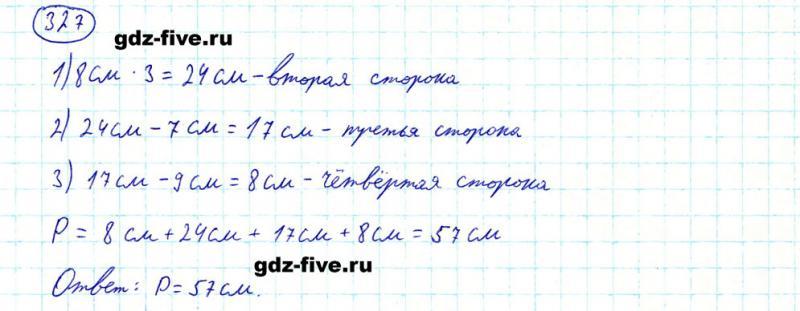 327
gdz-five.ru
1) 8 см · 3 = 24 см – вторая сторона
2) 24 см – 7 см = 17 см – третья сторона
3) 17 см – 9 см = 8 см – четвёртая сторона
P = 8 см + 24 см + 17 см + 8 см = 57 см
gdz-five.ru
Ответ: P = 57 см.